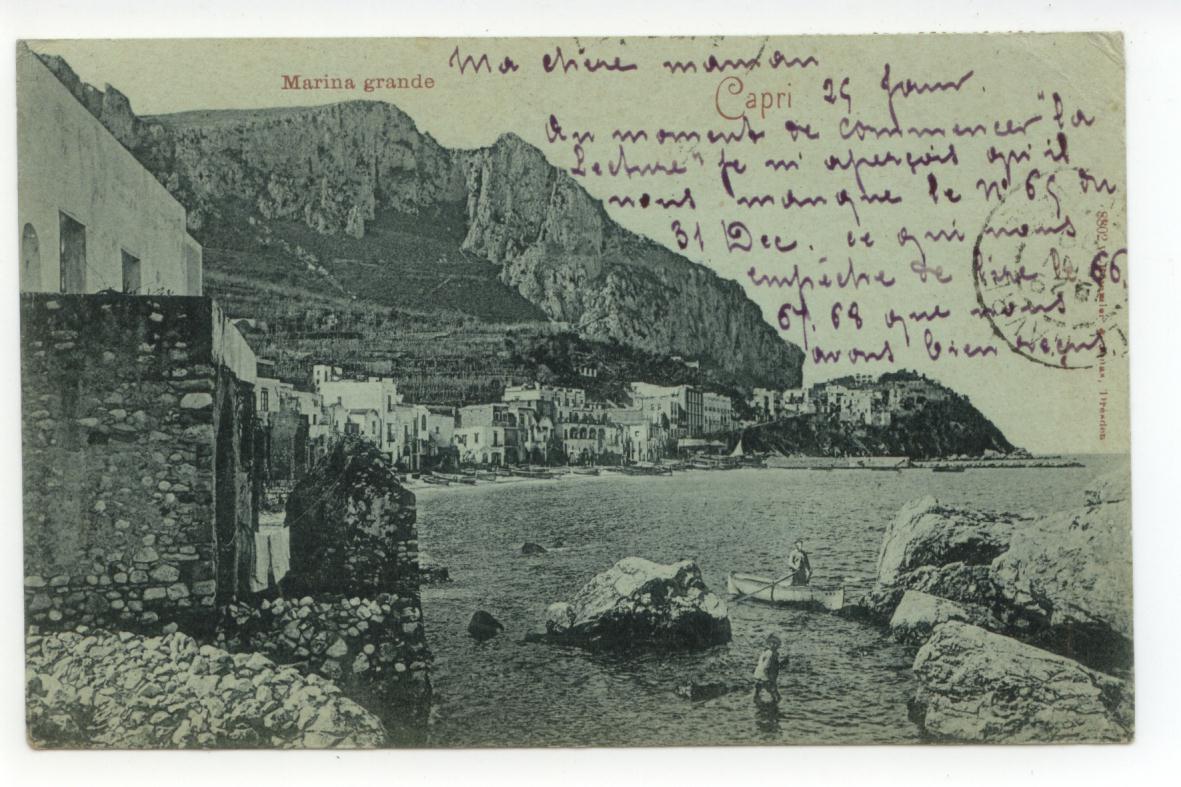 Marina grande
Capri
Ma chère maman
25 Janv.
Au moment de commencer "la
Lecture" je m'aperçois qu'il
nous manque le N° 65 du
31 Dec. ce qui nous
empêche de lire le 66,
67, 68 que nous
avons bien reçus.
8802
Dresden